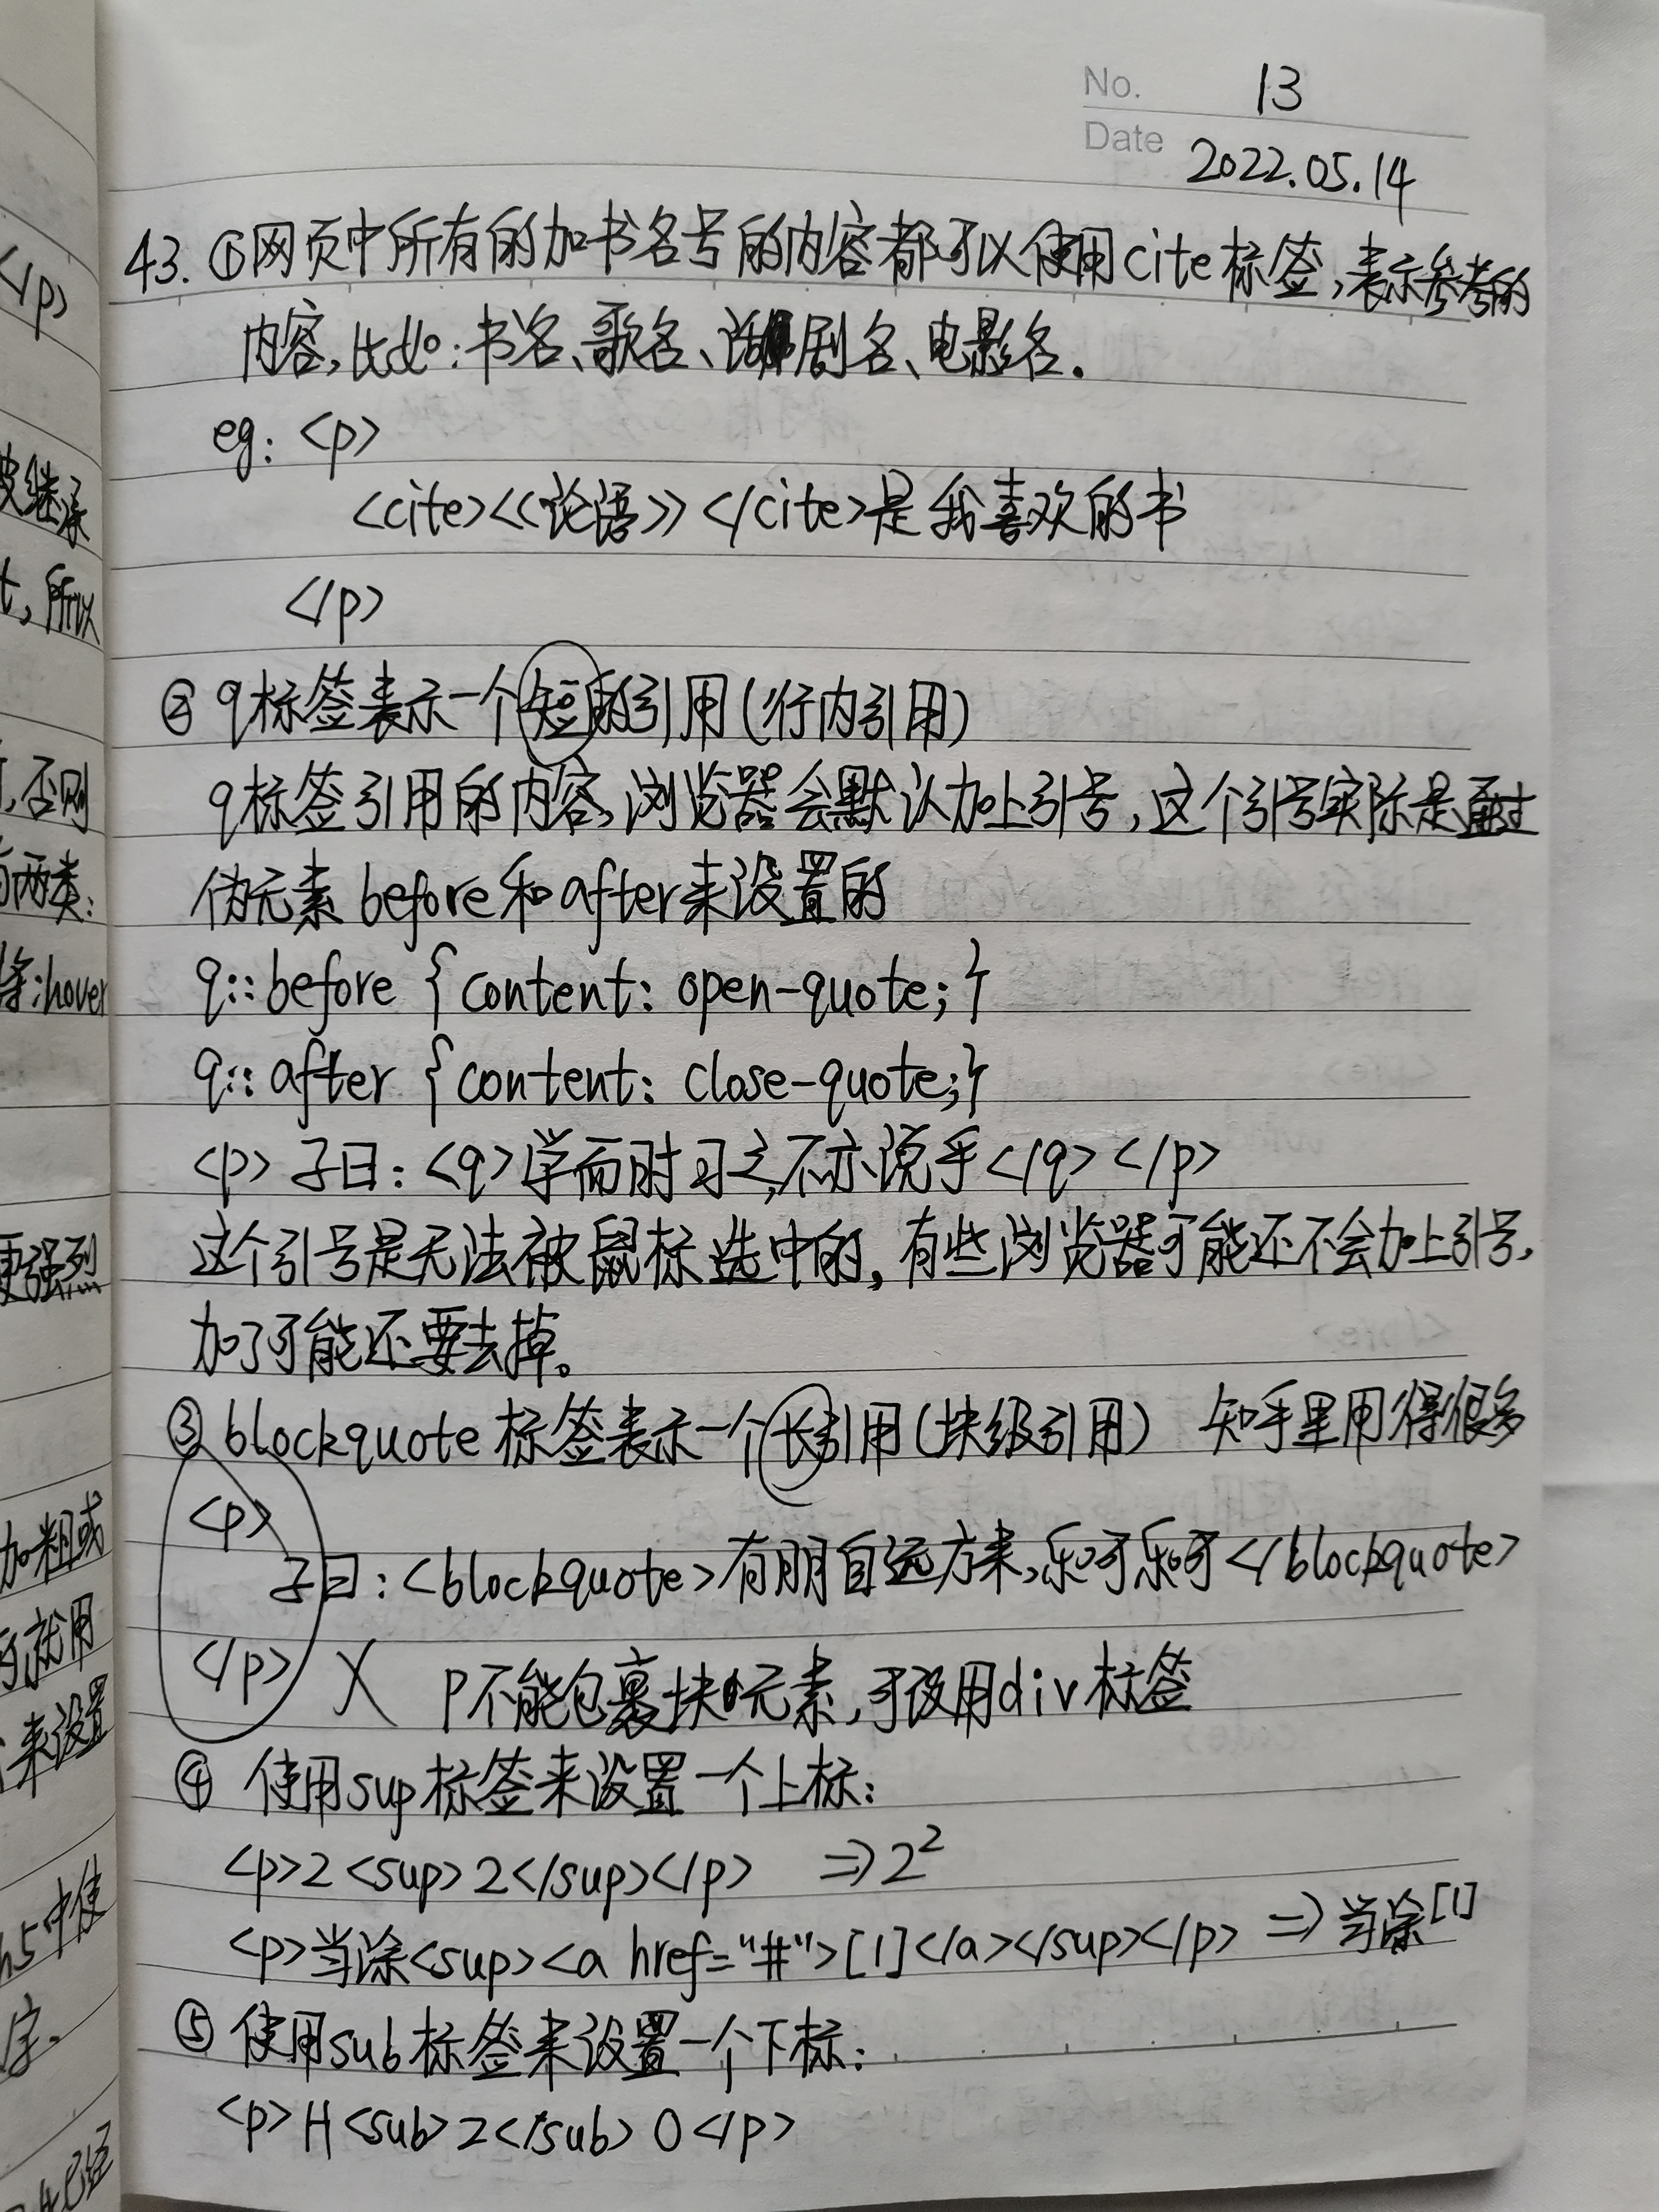 No. 13
Date 2022.05.14
43. ①网页中所有的加书名号的内容都可以使用cite标签,表示参考的
内容,比如:书名、歌名、话剧名、电影名.
eg: <p>
<cite><<论语>></cite>是我喜欢的书
</p>
② q标签表示一个短的引用(行内引用)
q标签引用的内容,浏览器会默认加上引号,这个引号实际是通过
伪元素before和after来设置的
q::before {content: open-quote;}
q::after {content: close-quote;}
<p>子曰:<q>学而时习之,不亦说乎</q></p>
这个引号是无法被鼠标选中的,有些浏览器可能还不会加上引号,
加了可能还要去掉。
③ blockquote标签表示一个长引用(块级引用) 知乎里用得很多
<p>
子曰:<blockquote>有朋自远方来,乐呵乐呵</blockquote>
</p> X p不能包裹块元素,可改用div标签
④ 使用sup标签来设置一个上标:
<p>2<sup>2</sup></p> => 2²
<p>当涂<sup><a href="#">[1]</a></sup></p> => 当涂[1]
⑤ 使用sub标签来设置一个下标:
<p>H<sub>2</sub>O</p>
</p>
被继承
所以
,否则
两类:
:hover
更强烈
加粗或
就用
来设置
h5中使
字.